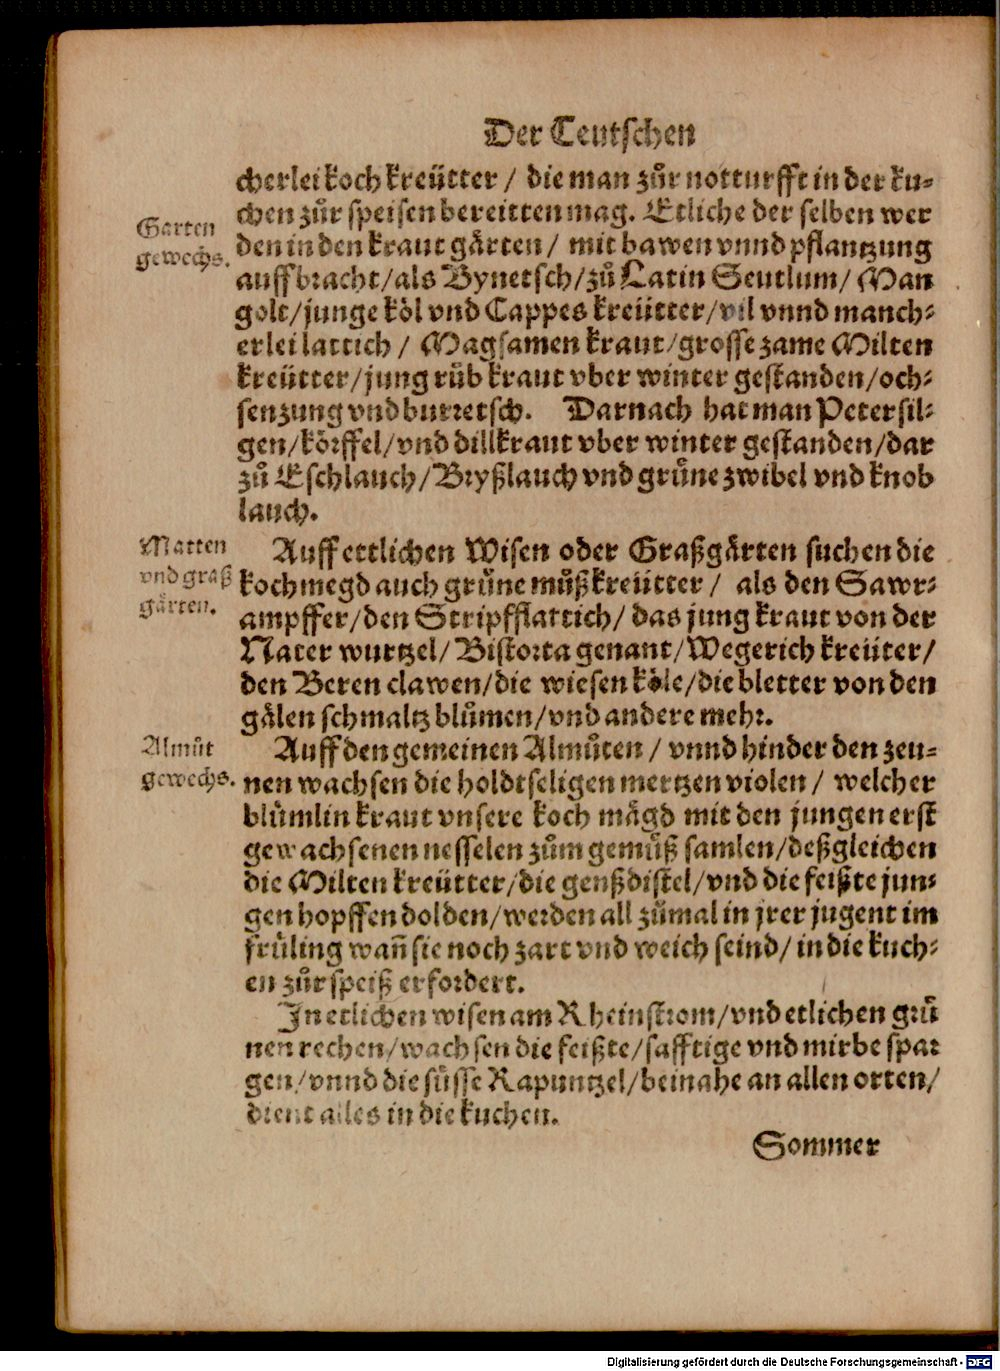 Der Teutschen
cherlei koch kreütter / die man zůr notturfft in der ku⸗
chen zůr speisen bereitten mag. Etliche der selben wer
Garten
gewechs.
den in den kraut gärten / mit bawen vnnd pflantzung
auffbracht/als Bynetsch/zů Latin Seutlum/ Man
golt/junge köl vnd Cappes kreütter/vil vnnd manch⸗
erlei lattich / Magsamen kraut/grosse zame Milten
kreütter/jung rüb kraut vber winter gestanden/och⸗
senzung vnd burretsch. Darnach hat man Petersil⸗
gen/körffel/vnd dillkraut vber winter gestanden/dar
zů Eschlauch/Bryßlauch vnd grüne zwibel vnd knob
lauch.
Matten
vnd graß
gärten.
Auff ettlichen Wisen oder Graßgärten suchen die
kochmegd auch grüne můßkreütter / als den Sawr⸗
ampffer/den Stripfflattich/ das jung kraut von der
Nater wurtzel/Bistorta genant/Wegerich kreüter/
den Beren clawen/die wiesen köle/die bletter von den
gälen schmaltz blůmen/vnd andere mehr.
Almůt
gewechs.
Auff den gemeinen Almůten / vnnd hinder den zeu⸗
nen wachsen die holdtseligen mertzen violen / welcher
blümlin kraut vnsere koch mägd mit den jungen erst
gewachsenen nesselen zům gemüß samlen/deßgleichen
die Milten kreütter/die genßdistel/vnd die feißte jun⸗
gen hopffen dolden/werden all zůmal in jrer jugent im
früling wañ sie noch zart vnd weich seind/ in die kuch⸗
en zůr speiß erfordert.
In etlichen wisen am Rheinstrom/vnd etlichen grü
nen rechen/wachsen die feißte/safftige vnd mirbe spar
gen/vnnd die süsse Rapuntzel/beinahe an allen orten/
dient alles in die kuchen.
Sommer
Digitalisierung gefördert durch die Deutsche Forschungsgemeinschaft - DFG